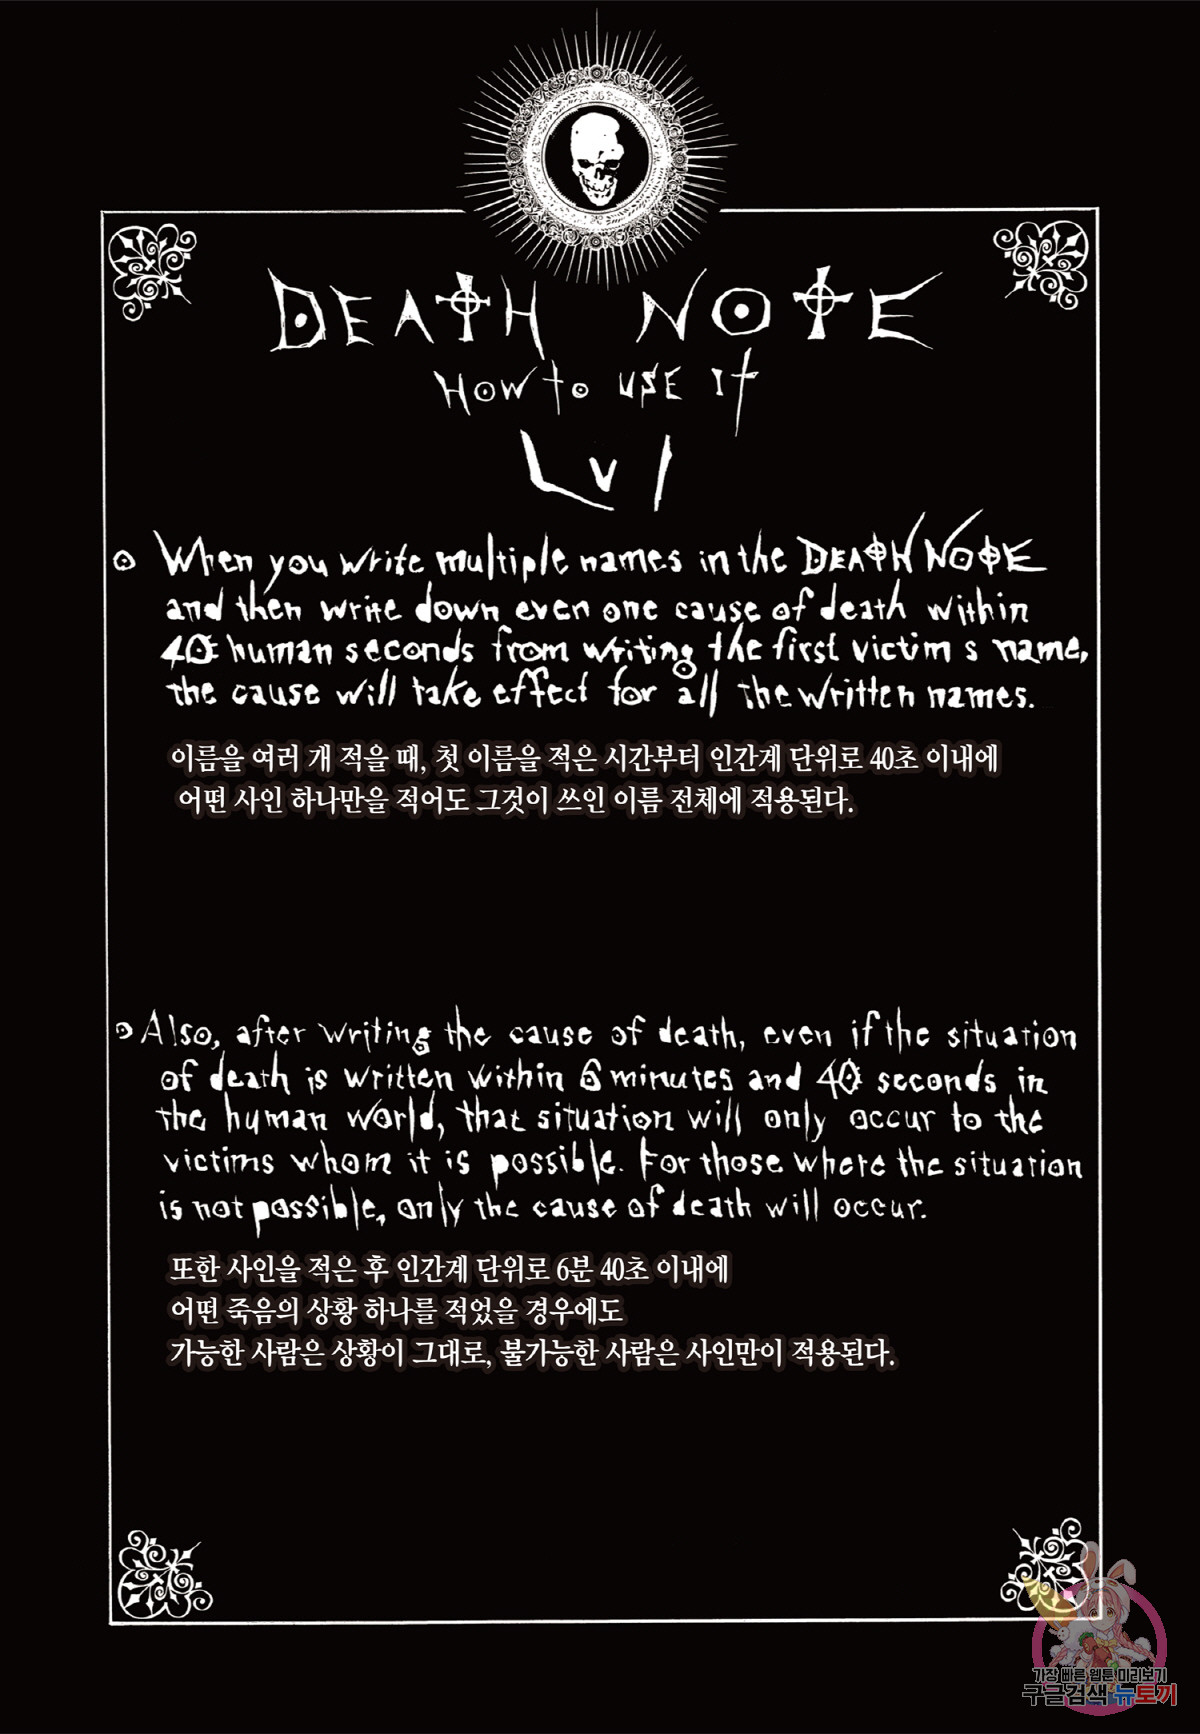 DEATH NOTE
HOW to USE It
LVI
When you write multiple names in the DEATH NOTE
and then write down even one cause of death within
40 human seconds from writing the first victim s name,
the cause will take effect for all the written names.
이름을 여러 개 적을 때, 첫 이름을 적은 시간부터 인간계 단위로 40초 이내에
어떤 사인 하나만을 적어도 그것이 쓰인 이름 전체에 적용된다.
Also, after writing the cause of death, even if the situation
of death is written within 6 minutes and 40 seconds in
the human world, that situation will only occur to the
victims whom it is possible. For those where the situation
is not possible, only the cause of death will occur.
또한 사인을 적은 후 인간계 단위로 6분 40초 이내에
어떤 죽음의 상황 하나를 적었을 경우에도
가능한 사람은 상황이 그대로, 불가능한 사람은 사인만이 적용된다.
가장 빠른 웹툰 미리보기
구글검색 뉴토끼